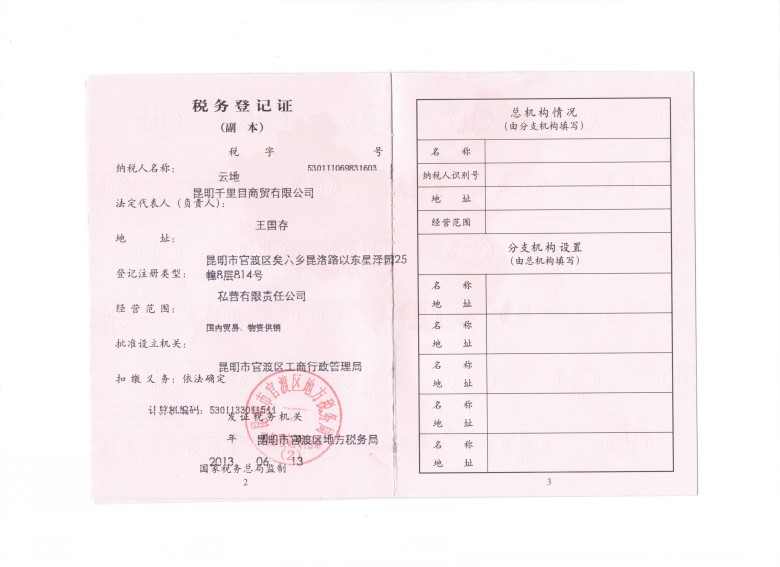 税务登记证
（副 本）
税 字 号
530111069831603
纳税人名称：
云地
昆明千里目商贸有限公司
法定代表人（负责人）：
王国存
地 址：
昆明市官渡区矣六乡昆洛路以东星泽园25
幢8层814号
登记注册类型：
私营有限责任公司
经营范围：
国内贸易、物资供销
批准设立机关：
昆明市官渡区工商行政管理局
扣缴义务：依法确定
计算机编码：5301133011541
发证税务机关
年
昆明市官渡区地方税务局
2013 06 13
国家税务总局监制
2
昆明市官渡区地方税务局
（2）
总机构情况
（由分支机构填写）
名 称
纳税人识别号
地 址
经营范围
分支机构设置
（由总机构填写）
名 称
地 址
名 称
地 址
名 称
地 址
名 称
地 址
名 称
地 址
3